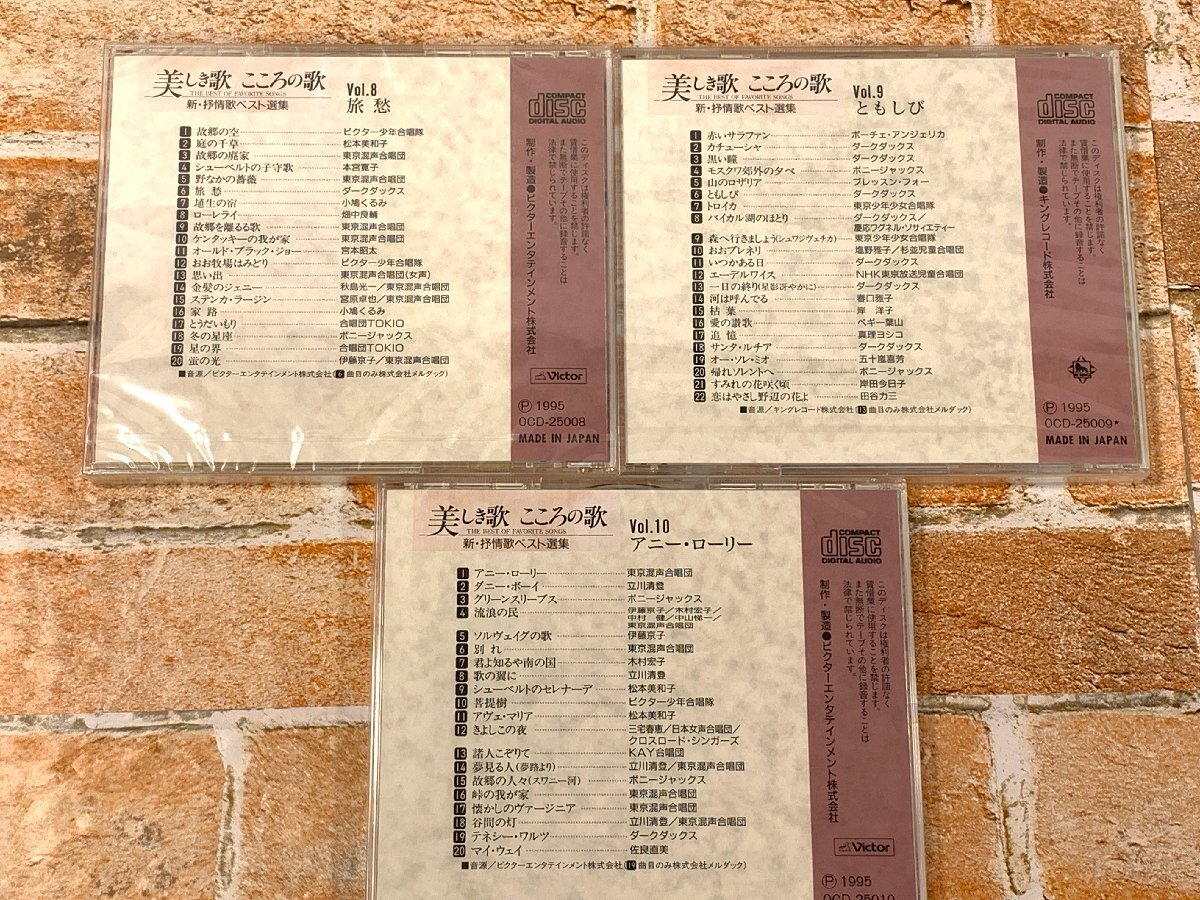 美しき歌 こころの歌
THE BEST OF FAVORITE SONGS
新・抒情歌ベスト選集
Vol.8
旅 愁
1 故郷の空 ビクター少年合唱隊
2 庭の千草 松本美和子
3 故郷の廃家 東京混声合唱団
4 シューベルトの子守歌 本宮寛子
5 野なかの薔薇 東京混声合唱団
6 旅 愁 ダークダックス
7 埴生の宿 小鳩くるみ
8 ローレライ 畑中良輔
9 故郷を離るる歌 東京混声合唱団
10 ケンタッキーの我が家 東京混声合唱団
11 オールド・ブラック・ジョー 宮本昭太
12 おお牧場はみどり ビクター少年合唱隊
13 思い出 東京混声合唱団(女声)
14 金髪のジェニー 秋島光一/東京混声合唱団
15 ステンカ・ラージン 宮原卓也/東京混声合唱団
16 家 路 小鳩くるみ
17 とうだいもり 合唱団TOKIO
18 冬の星座 ボニージャックス
19 星の界 合唱団TOKIO
20 蛍の光 伊藤京子/東京混声合唱団
■音源/ビクターエンタテインメント株式会社(6曲目のみ株式会社メルダック)
COMPACT
disc
DIGITAL AUDIO
このディスクは権利者の許諾なく
賃借業に使用することを禁じます。
また無断でテープその他に録音することは
法律で禁じられています。
制作・製造●ビクターエンタテインメント株式会社
Victor
Ⓟ 1995
OCD-25008
MADE IN JAPAN
美しき歌 こころの歌
THE BEST OF FAVORITE SONGS
新・抒情歌ベスト選集
Vol.9
ともしび
1 赤いサラファン ボーチェ・アンジェリカ
2 カチューシャ ダークダックス
3 黒い瞳 ダークダックス
4 モスクワ郊外の夕べ ボニージャックス
5 山のロザリア ブレッスン・フォー
6 ともしび ダークダックス
7 トロイカ 東京少年少女合唱隊
8 バイカル湖のほとり ダークダックス/
慶応ワグネル・ソサィエティー
9 森へ行きましょう(シュワジヴェチカ) 東京少年少女合唱隊
10 おおブレネリ 塩野雅子/杉並児童合唱団
11 いつかある日 ダークダックス
12 エーデルワイス NHK東京放送児童合唱団
13 一日の終り(星影冴やかに) ダークダックス
14 河は呼んでる 春口雅子
15 枯 葉 岸 洋子
16 愛の讃歌 ペギー葉山
17 追 憶 真理ヨシコ
18 サンタ・ルチア ダークダックス
19 オー・ソレ・ミオ 五十嵐喜芳
20 帰れソレントへ ボニージャックス
21 すみれの花咲く頃 岸田今日子
22 恋はやさし野辺の花よ 田谷力三
■音源/キングレコード株式会社(13曲目のみ株式会社メルダック)
COMPACT
disc
DIGITAL AUDIO
このディスクは権利者の許諾なく
賃借業に使用することを禁じます。
また無断でテープその他に録音することは
法律で禁じられています。
制作・製造●キングレコード株式会社
Ⓟ 1995
OCD-25009*
MADE IN JAPAN
美しき歌 こころの歌
THE BEST OF FAVORITE SONGS
新・抒情歌ベスト選集
Vol.10
アニー・ローリー
1 アニー・ローリー 東京混声合唱団
2 ダニー・ボーイ 立川清登
3 グリーンスリーブス ボニージャックス
4 流浪の民 伊藤京子/木村宏子/
中村 健/中山悌一/
東京混声合唱団
5 ソルヴェイグの歌 伊藤京子
6 別 れ 東京混声合唱団
7 君よ知るや南の国 木村宏子
8 歌の翼に 立川清登
9 シューベルトのセレナーデ 松本美和子
10 菩提樹 ビクター少年合唱隊
11 アヴェ・マリア 松本美和子
12 きよしこの夜 三宅春恵/日本女声合唱団/
クロスロード・シンガーズ
13 諸人こぞりて KAY合唱団
14 夢見る人(夢路より) 立川清登/東京混声合唱団
15 故郷の人々(スワニー河) ボニージャックス
16 峠の我が家 東京混声合唱団
17 懐かしのヴァージニア 東京混声合唱団
18 谷間の灯 立川清登/東京混声合唱団
19 テネシー・ワルツ ダークダックス
20 マイ・ウェイ 佐良直美
■音源/ビクターエンタテインメント株式会社(19曲目のみ株式会社メルダック)
COMPACT
disc
DIGITAL AUDIO
このディスクは権利者の許諾なく
賃借業に使用することを禁じます。
また無断でテープその他に録音することは
法律で禁じられています。
制作・製造●ビクターエンタテインメント株式会社
Victor
Ⓟ 1995
OCD-25010